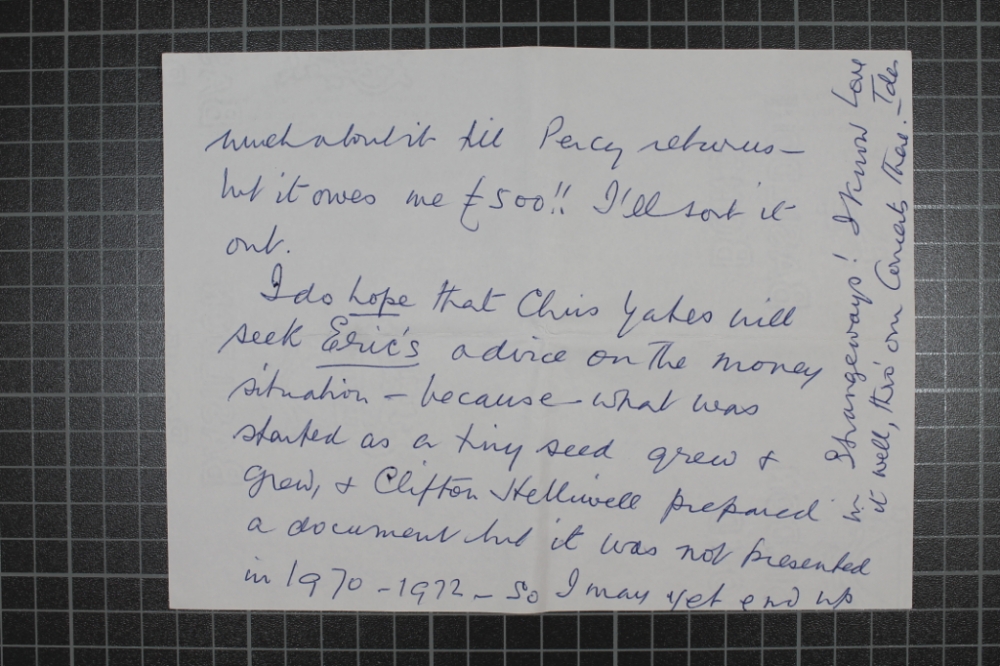 much about it till Percy returns –
but it owes me £500!! I'll sort it
out.
I do hope that Chris Yates will
seek Eric's advice on the money
situation – because what was
started as a tiny seed grew &
grew, & Clifton Helliwell prepared
a document but it was not presented
in 1970 – 1972 – so I may yet end up
in Strangeways! I know
it well, thro' our Concerts there. –
Love
Ida